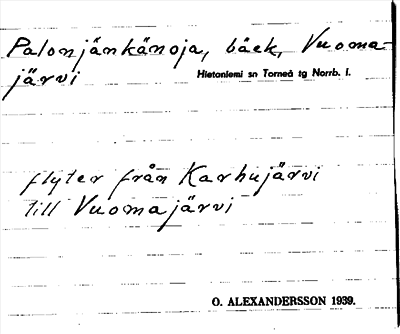 Palonjänkänoja, bäck, Vuoma-
järvi
Hietaniemi sn Torneå tg Norrb. l.
flyter från Karhujärvi
till Vuomajärvi
O. ALEXANDERSSON 1939.